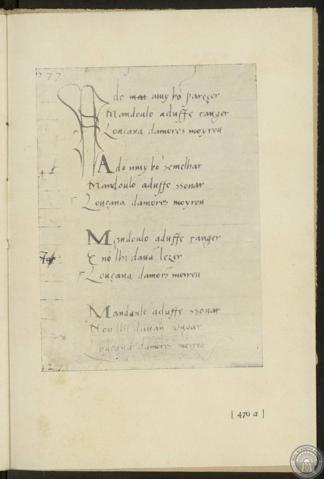 A do muy bõ pareçer
Mandoulo aduffe tanger
Louçana damores moyreu
A do muy bõ semelhar
Mandoulo aduffe ssonar
Louçana damores moyreu
Mandoulo aduffe tanger
E nolhi dauã lezer
Louçana damores moireu
Mandaulo aduffe ssonar
Nou lhi dauan
Louçana damores moireu
[ 476 a ]